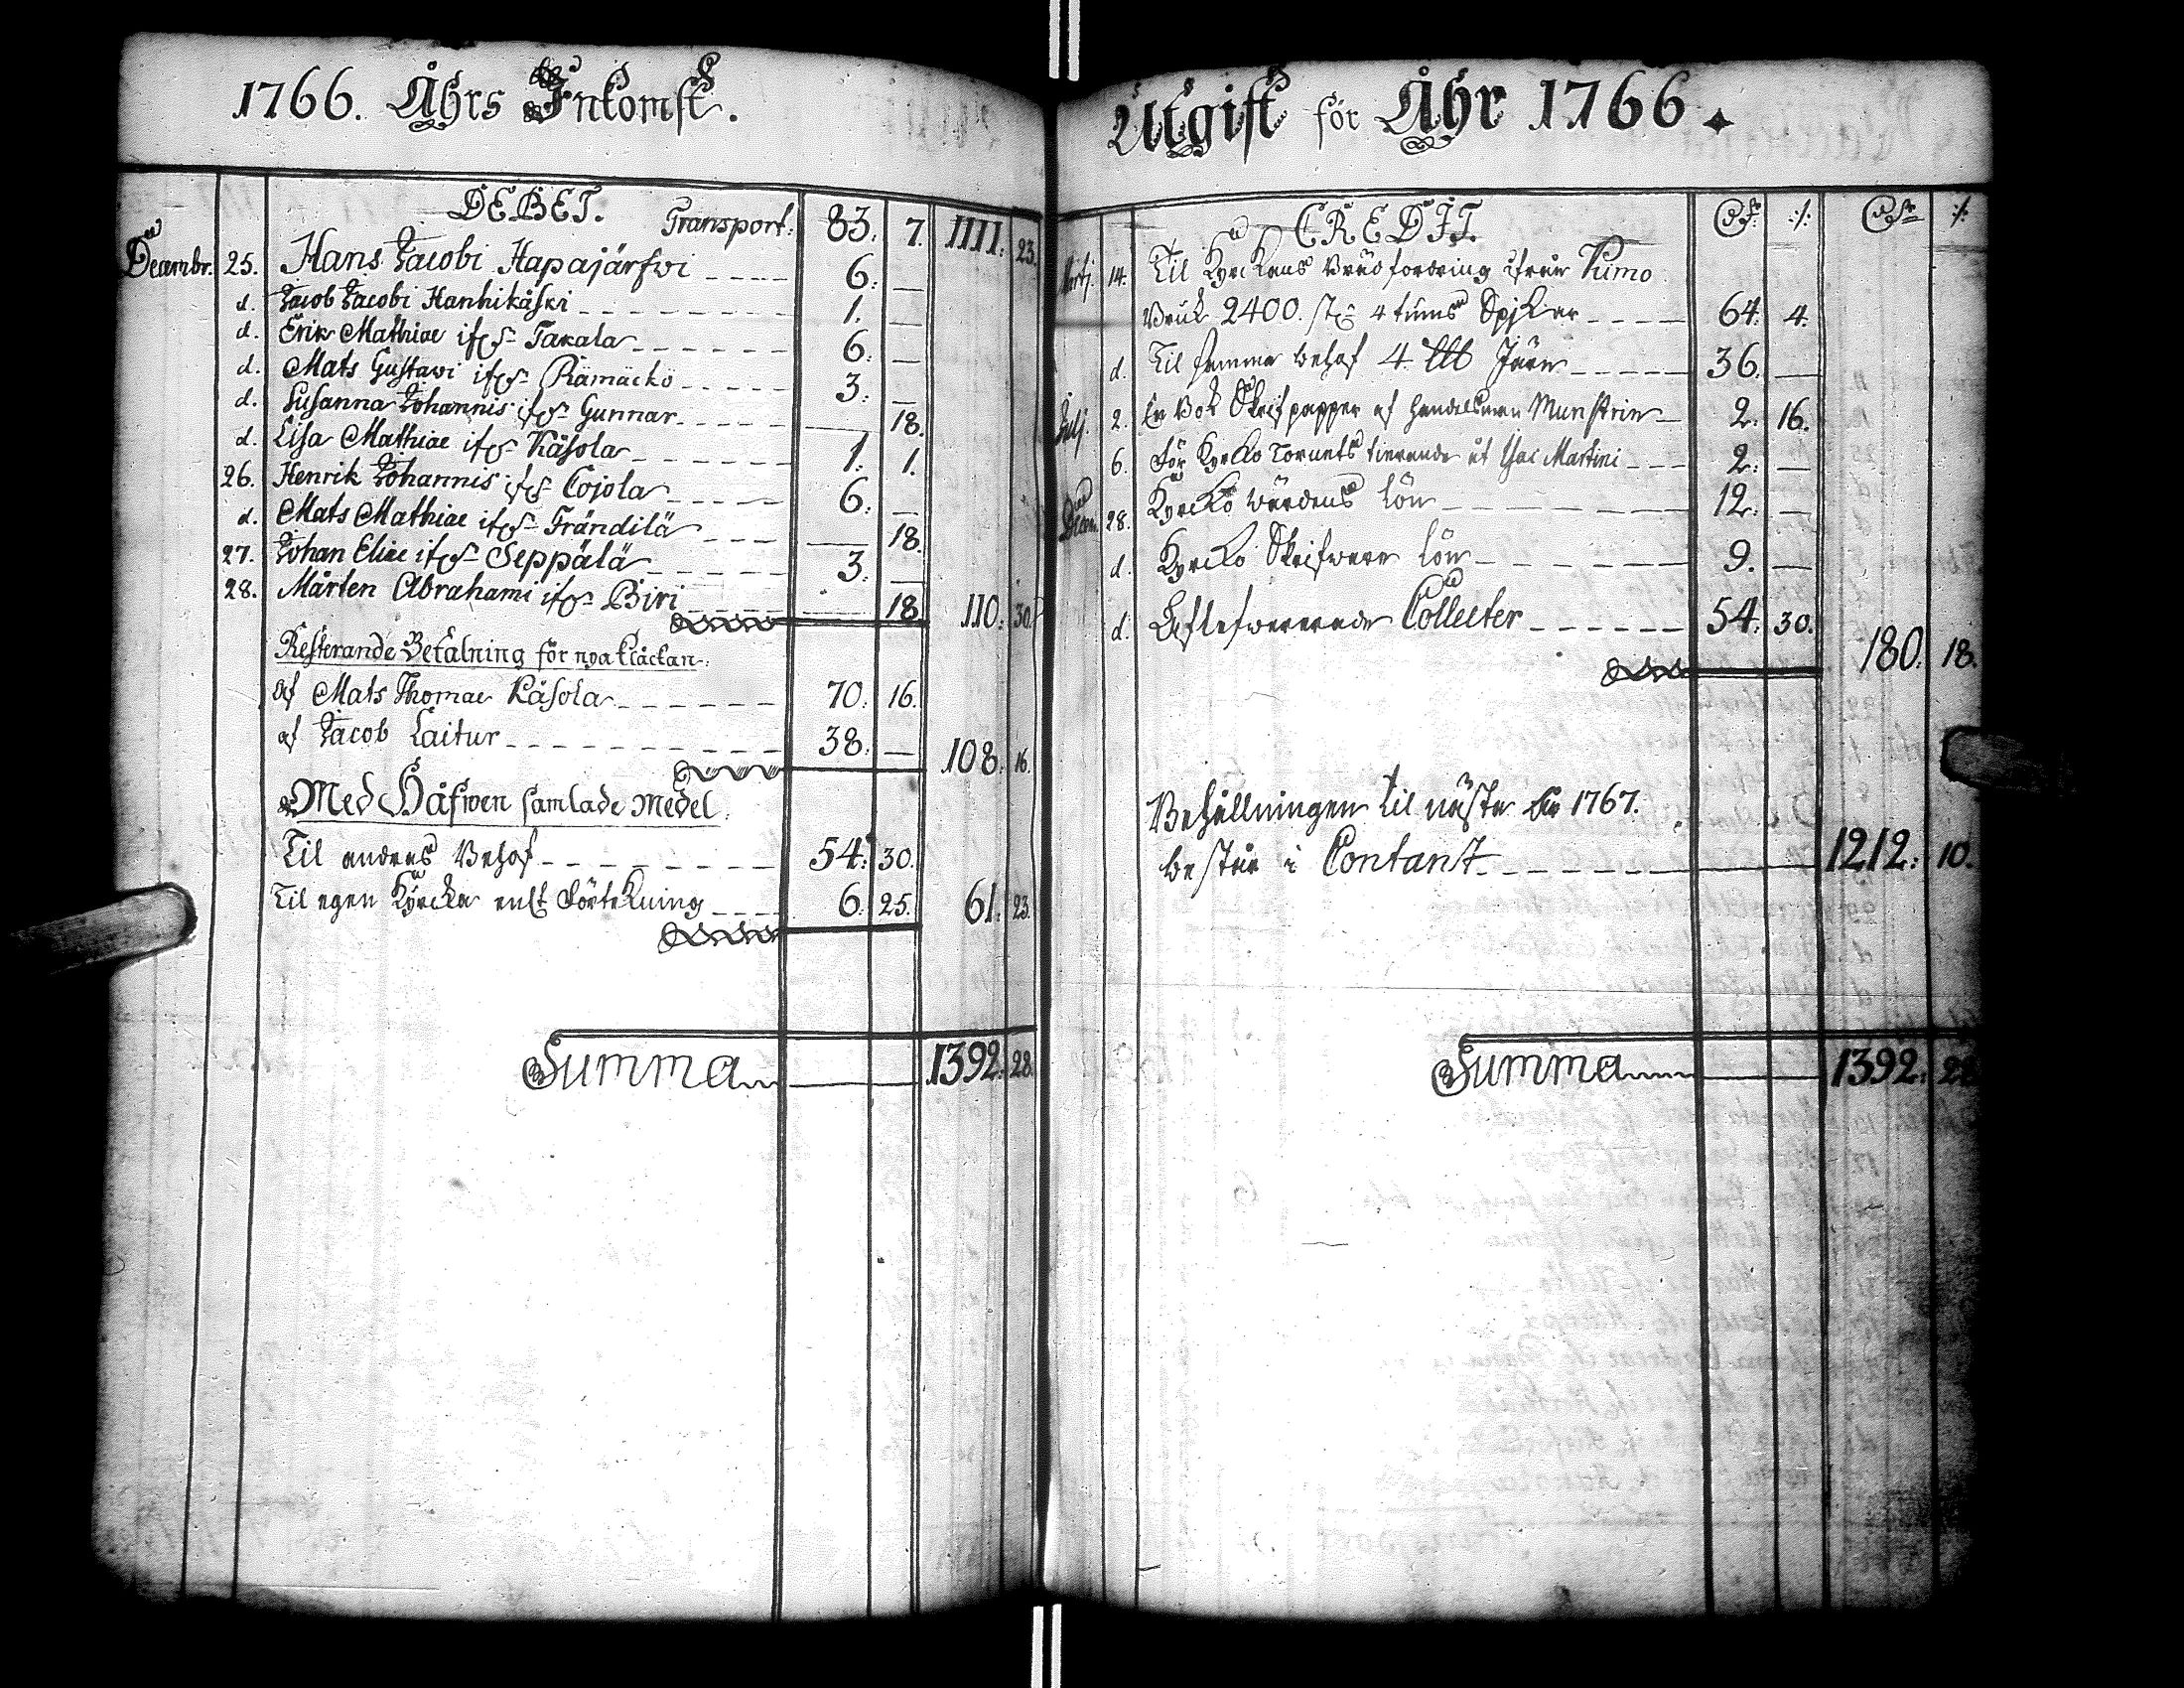 1766. Åhrs Inkomst.
DEBET. Transport: 83. 7. 1111. 23.
Decembr. 25. Hans Jacobi Hapajärfwi 6. —
d. Jacob Jacobi Hanhikåski 1. —
d. Erik Mathiae ifrn Takala 6. —
d. Mats Gustavi ifrn Rämäckö 3. —
d. Susanna Johannis ifrn Gunnar — 18.
d. Lisa Mathiae ifrn Kåsola 1. 1.
26. Henrik Johannis ifrn Cojola 6. —
d. Mats Mathiae ifrn Frändilä — 18.
27. Johan Eliae ifrn Seppälä 3. —
28. Mårten Abrahami ifrn Biri — 18. 110. 30.
Resterande Betalning för nya klåckan.
Af Mats Thomae Kåsola 70. 16.
af Jacob Laitur 38. — 108. 16.
Med Håfwen samlade Medel.
Til andras Behof 54. 30.
Til egen Kyrcka enl. Förtekning 6. 25. 61. 23.
Summa 1392. 28.
Utgift för Åhr 1766.
CREDIT.
Martj. 14. Til Kyrckans behof ifrån Kumo
Bruk 2400. st. 4 tums Spikar 64. 4.
d. Til samma behof 4 Järn 36. —
Julj. 2. En Bok Skrifpapper af Handelsman Munstrin 2. 16.
6. För Kyrko Tornets tierande åt Martini 2. —
Decem. 28. Kyrko Wärdens lön 12. —
d. Kyrko Skrifware lön 9. —
d. Collecter 54. 30. 180. 18.
Behållningen til nästa år 1767.
består i Contant 1212. 10.
Summa 1392. 28